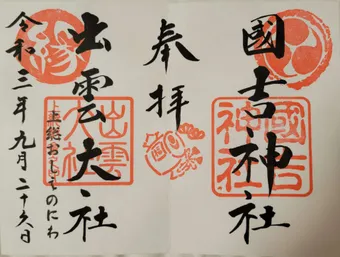 國吉神社
國吉神社
奉拝
出雲大社
出雲大社
縁
上総
のにわ
令和三年九月二十六日